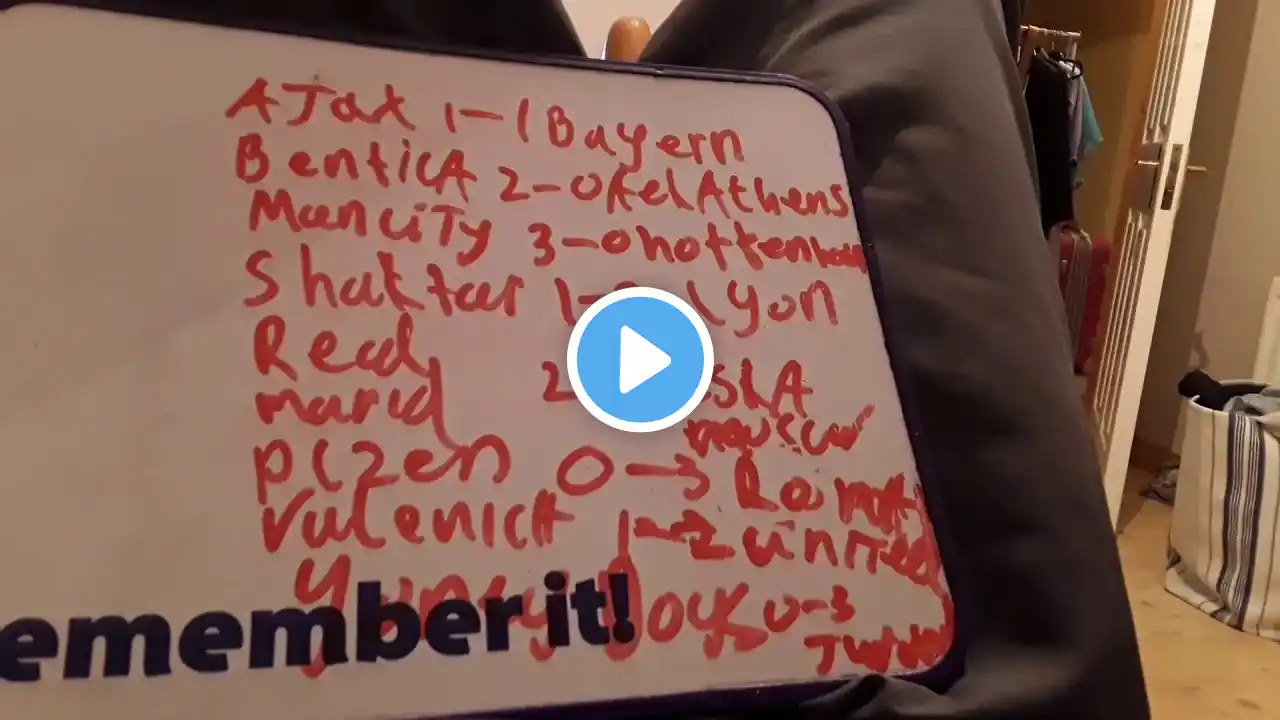 AJax 1-1 Bayern
BenticA 2-0 AelAthens
ManciTy 3-0 hottenham
Shaktar 1- Lyon
Read
marid 2 skA
moscow
plzen 0-3 Roma
Valenict 1-2 uniTed
young Boys 0-3
Juv
emember it!